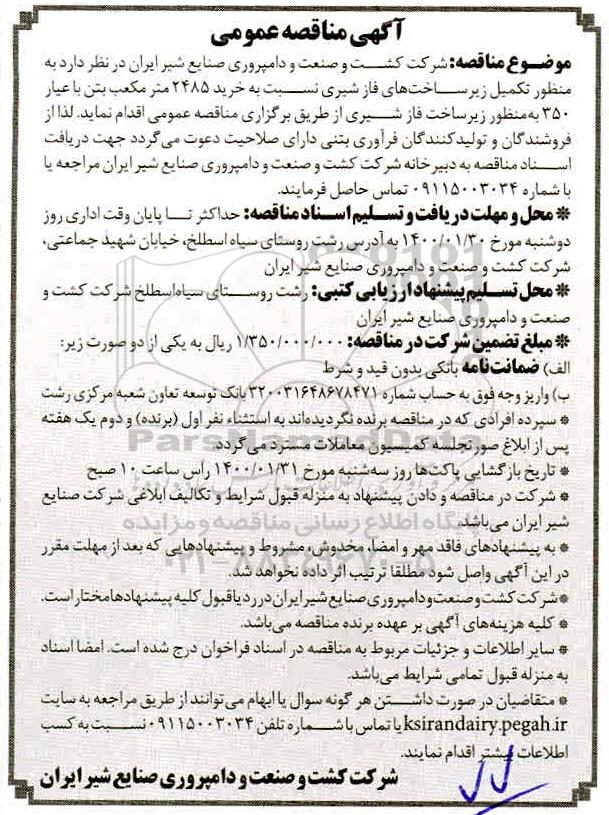 آگهی مناقصه عمومی
موضوع مناقصه: شرکت کشت و صنعت و دامپروری صنایع شیر ایران در نظر دارد به
منظور تکمیل زیرساخت‌های فاز شیری نسبت به خرید ۲۴۸۵ متر مکعب بتن با عیار
۳۵۰ به‌منظور زیرساخت فاز شیری از طریق برگزاری مناقصه عمومی اقدام نماید. لذا از
فروشندگان و تولیدکنندگان فرآوری بتنی دارای صلاحیت دعوت می‌گردد جهت دریافت
اسناد مناقصه به دبیرخانه شرکت کشت و صنعت و دامپروری صنایع شیر ایران مراجعه یا
با شماره ۰۹۱۱۵۰۰۳۰۳۴ تماس حاصل فرمایند.
* محل و مهلت دریافت و تسلیم اسناد مناقصه: حداکثر تا پایان وقت اداری روز
دوشنبه مورخ ۱۴۰۰/۰۱/۳۰ به آدرس رشت روستای سیاه اسطلخ، خیابان شهید جماعتی،
شرکت کشت و صنعت و دامپروری صنایع شیر ایران
* محل تسلیم پیشنهاد ارزیابی کتبی: رشت روستای سیاه‌اسطلخ شرکت کشت و
صنعت و دامپروری صنایع شیر ایران
* مبلغ تضمین شرکت در مناقصه: ۱/۳۵۰/۰۰۰/۰۰۰ ریال به یکی از دو صورت زیر:
الف) ضمانت‌نامه بانکی بدون قید و شرط
ب) واریز وجه فوق به حساب شماره ۳۲۰۰۳۱۶۴۸۶۷۸۴۷۱ بانک توسعه تعاون شعبه مرکزی رشت
* سپرده افرادی که در مناقصه برنده نگردیده‌اند به استثناء نفر اول (برنده) و دوم یک هفته
پس از ابلاغ صورتجلسه کمیسیون معاملات مسترد می‌گردد.
* تاریخ بازگشایی پاکت‌ها روز سه‌شنبه مورخ ۱۴۰۰/۰۱/۳۱ راس ساعت ۱۰ صبح
* شرکت در مناقصه و دادن پیشنهاد به منزله قبول شرایط و تکالیف ابلاغی شرکت صنایع
شیر ایران می‌باشد.
* به پیشنهادهای فاقد مهر و امضا، مخدوش، مشروط و پیشنهادهایی که بعد از مهلت مقرر
در این آگهی واصل شود مطلقا ترتیب اثر داده نخواهد شد.
* شرکت کشت و صنعت و دامپروری صنایع شیر ایران در رد یا قبول کلیه پیشنهادها مختار است.
* کلیه هزینه‌های آگهی بر عهده برنده مناقصه می‌باشد.
* سایر اطلاعات و جزئیات مربوط به مناقصه در اسناد فراخوان درج شده است. امضا اسناد
به منزله قبول تمامی شرایط می‌باشد.
* متقاضیان در صورت داشتن هر گونه سوال یا ابهام می‌توانند از طریق مراجعه به سایت
ksirandairy.pegah.ir یا تماس با شماره تلفن ۰۹۱۱۵۰۰۳۰۳۴ نسبت به کسب
اطلاعات بیشتر اقدام نمایند.
شرکت کشت و صنعت و دامپروری صنایع شیر ایران